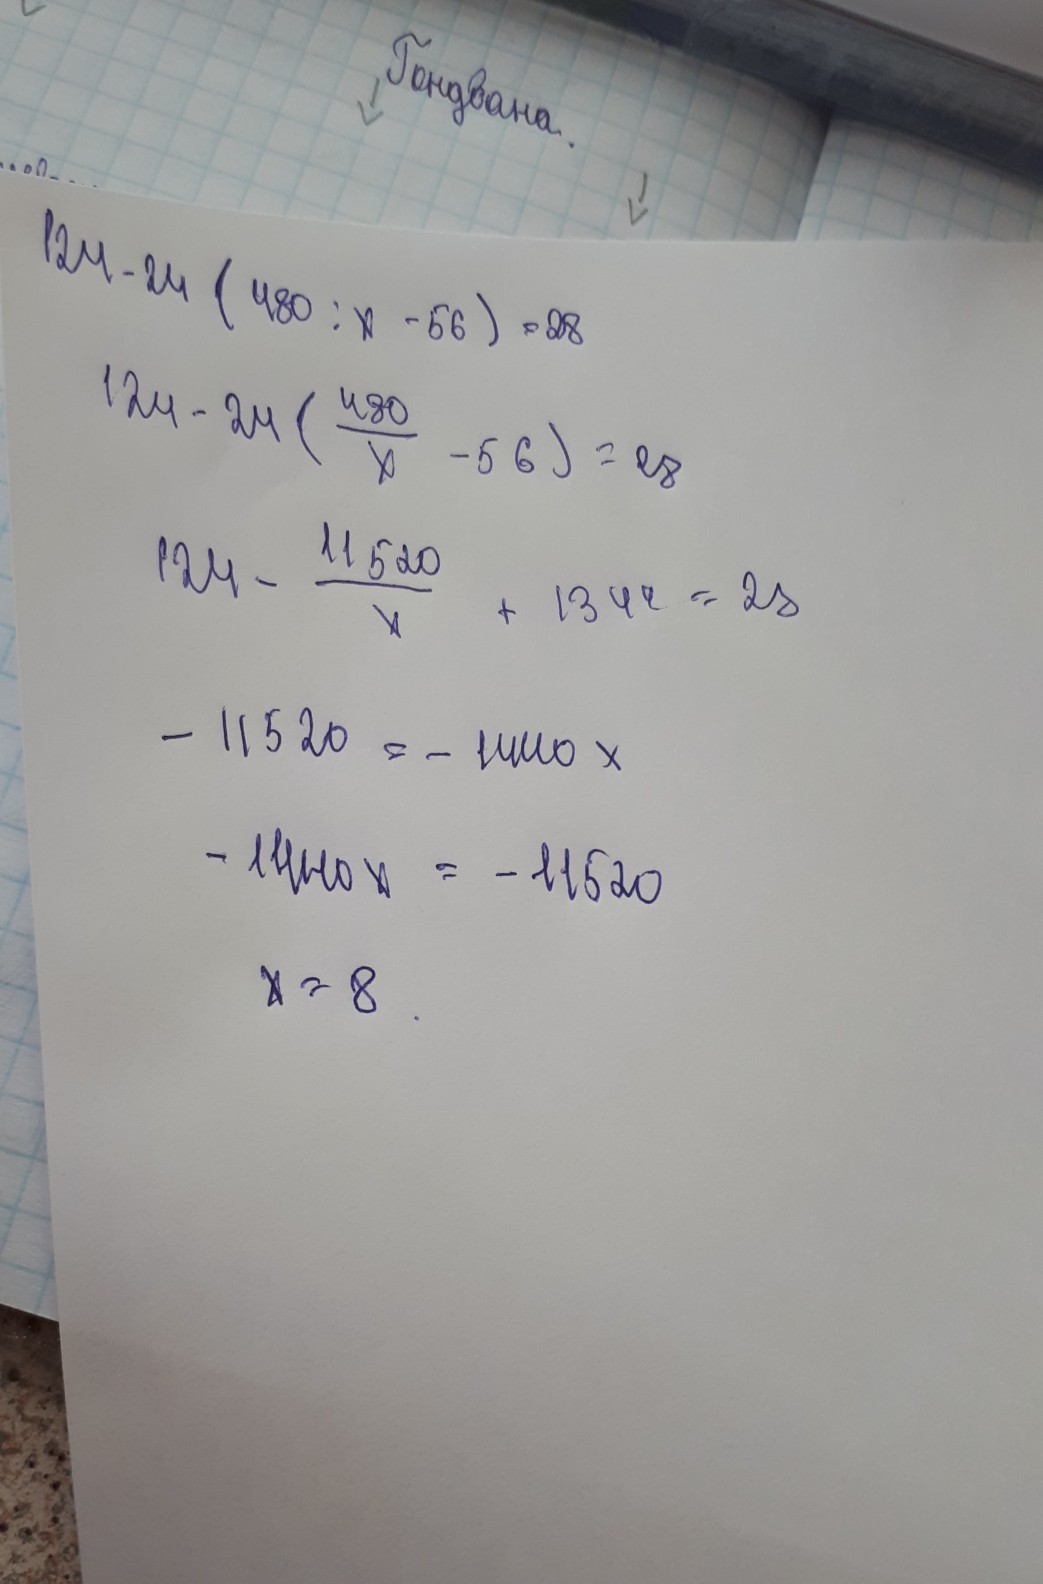 Гондвана.
124-24(480:x-56)=28
124-24(480/x-56)=28
124-11520/x+1344=28
-11520=-1440x
-1440x=-11520
x=8.